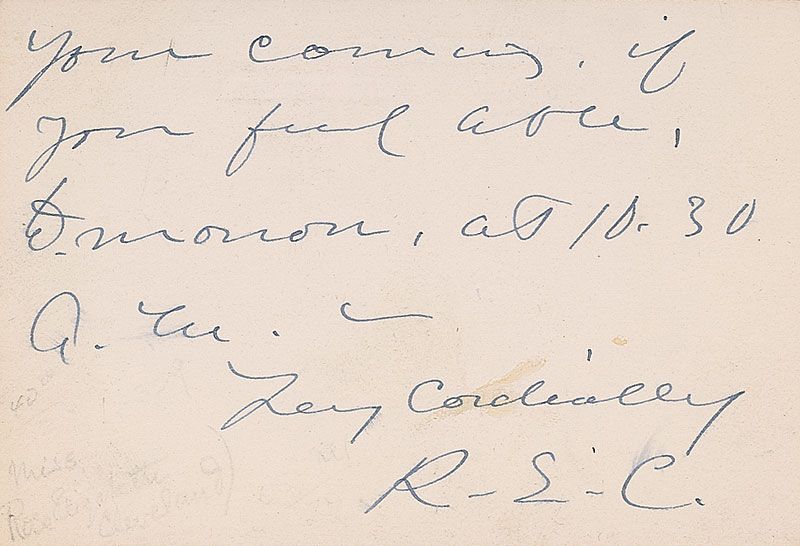 your coming, if
you feel able,
to-morrow, at 10.30
A. M. —
Very Cordially
R-E-C.
40
Miss
Rose Elizabeth
Cleveland)